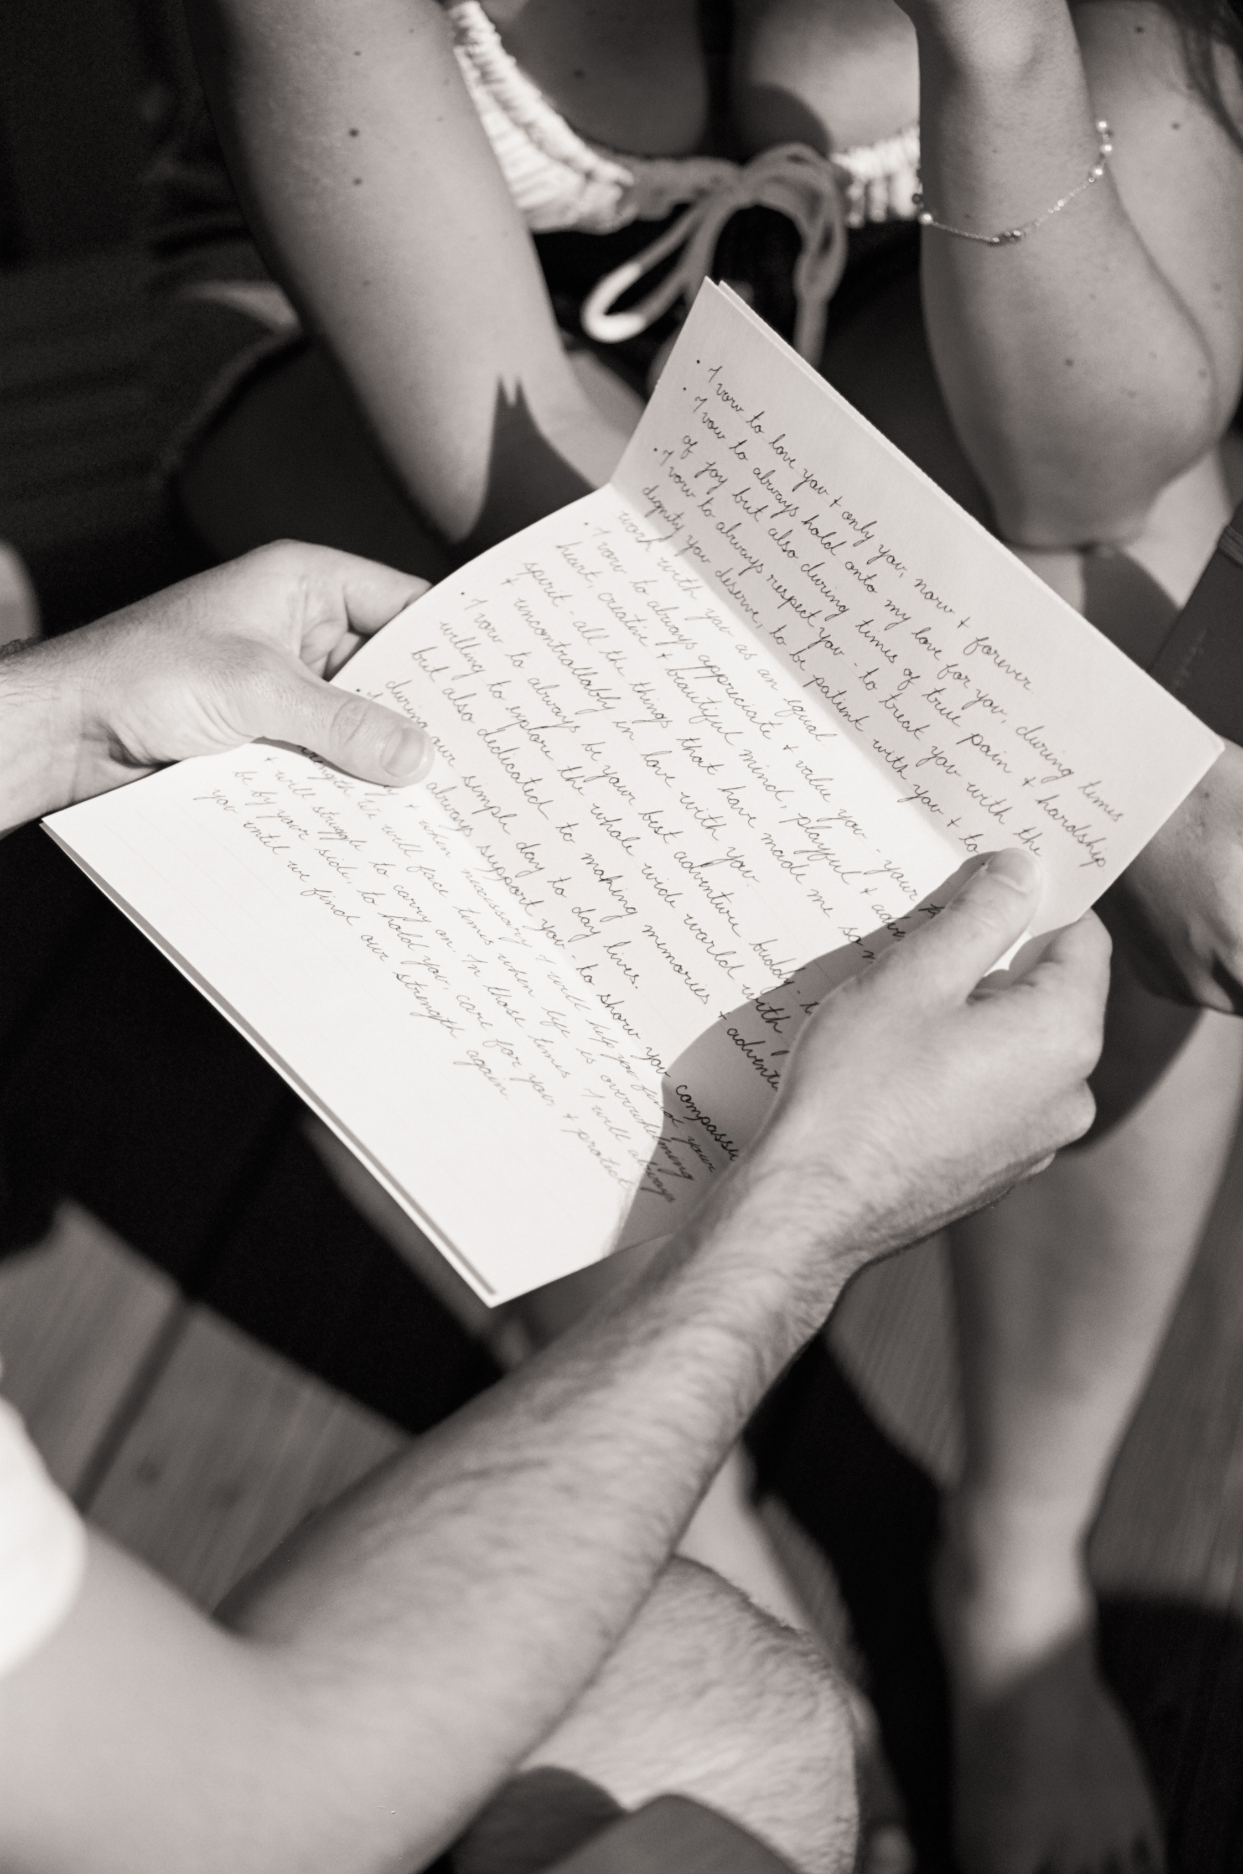 • I vow to love you + only you, now + forever
• I vow to always hold onto my love for you, during times
of joy but also during times of true pain + hardship
• I vow to always respect you - to treat you with the
dignity you deserve, to be patient with you + to
work with you as an equal
• I vow to always appreciate + value you - your
heart, creative + beautiful mind, playful +
spirit - all the things that have made me so
+ uncontrollably in love with you.
• I vow to always be your best adventure buddy -
willing to explore the whole wide world with
but also dedicated to making memories +
during our simple day to day lives.
always support you - to show you
+ when necessary I will help you find your
we will face times when life is overwhelming
+ will struggle to carry on. In those times I will always
be by your side, to hold you, care for you + protect
you until we find our strength again